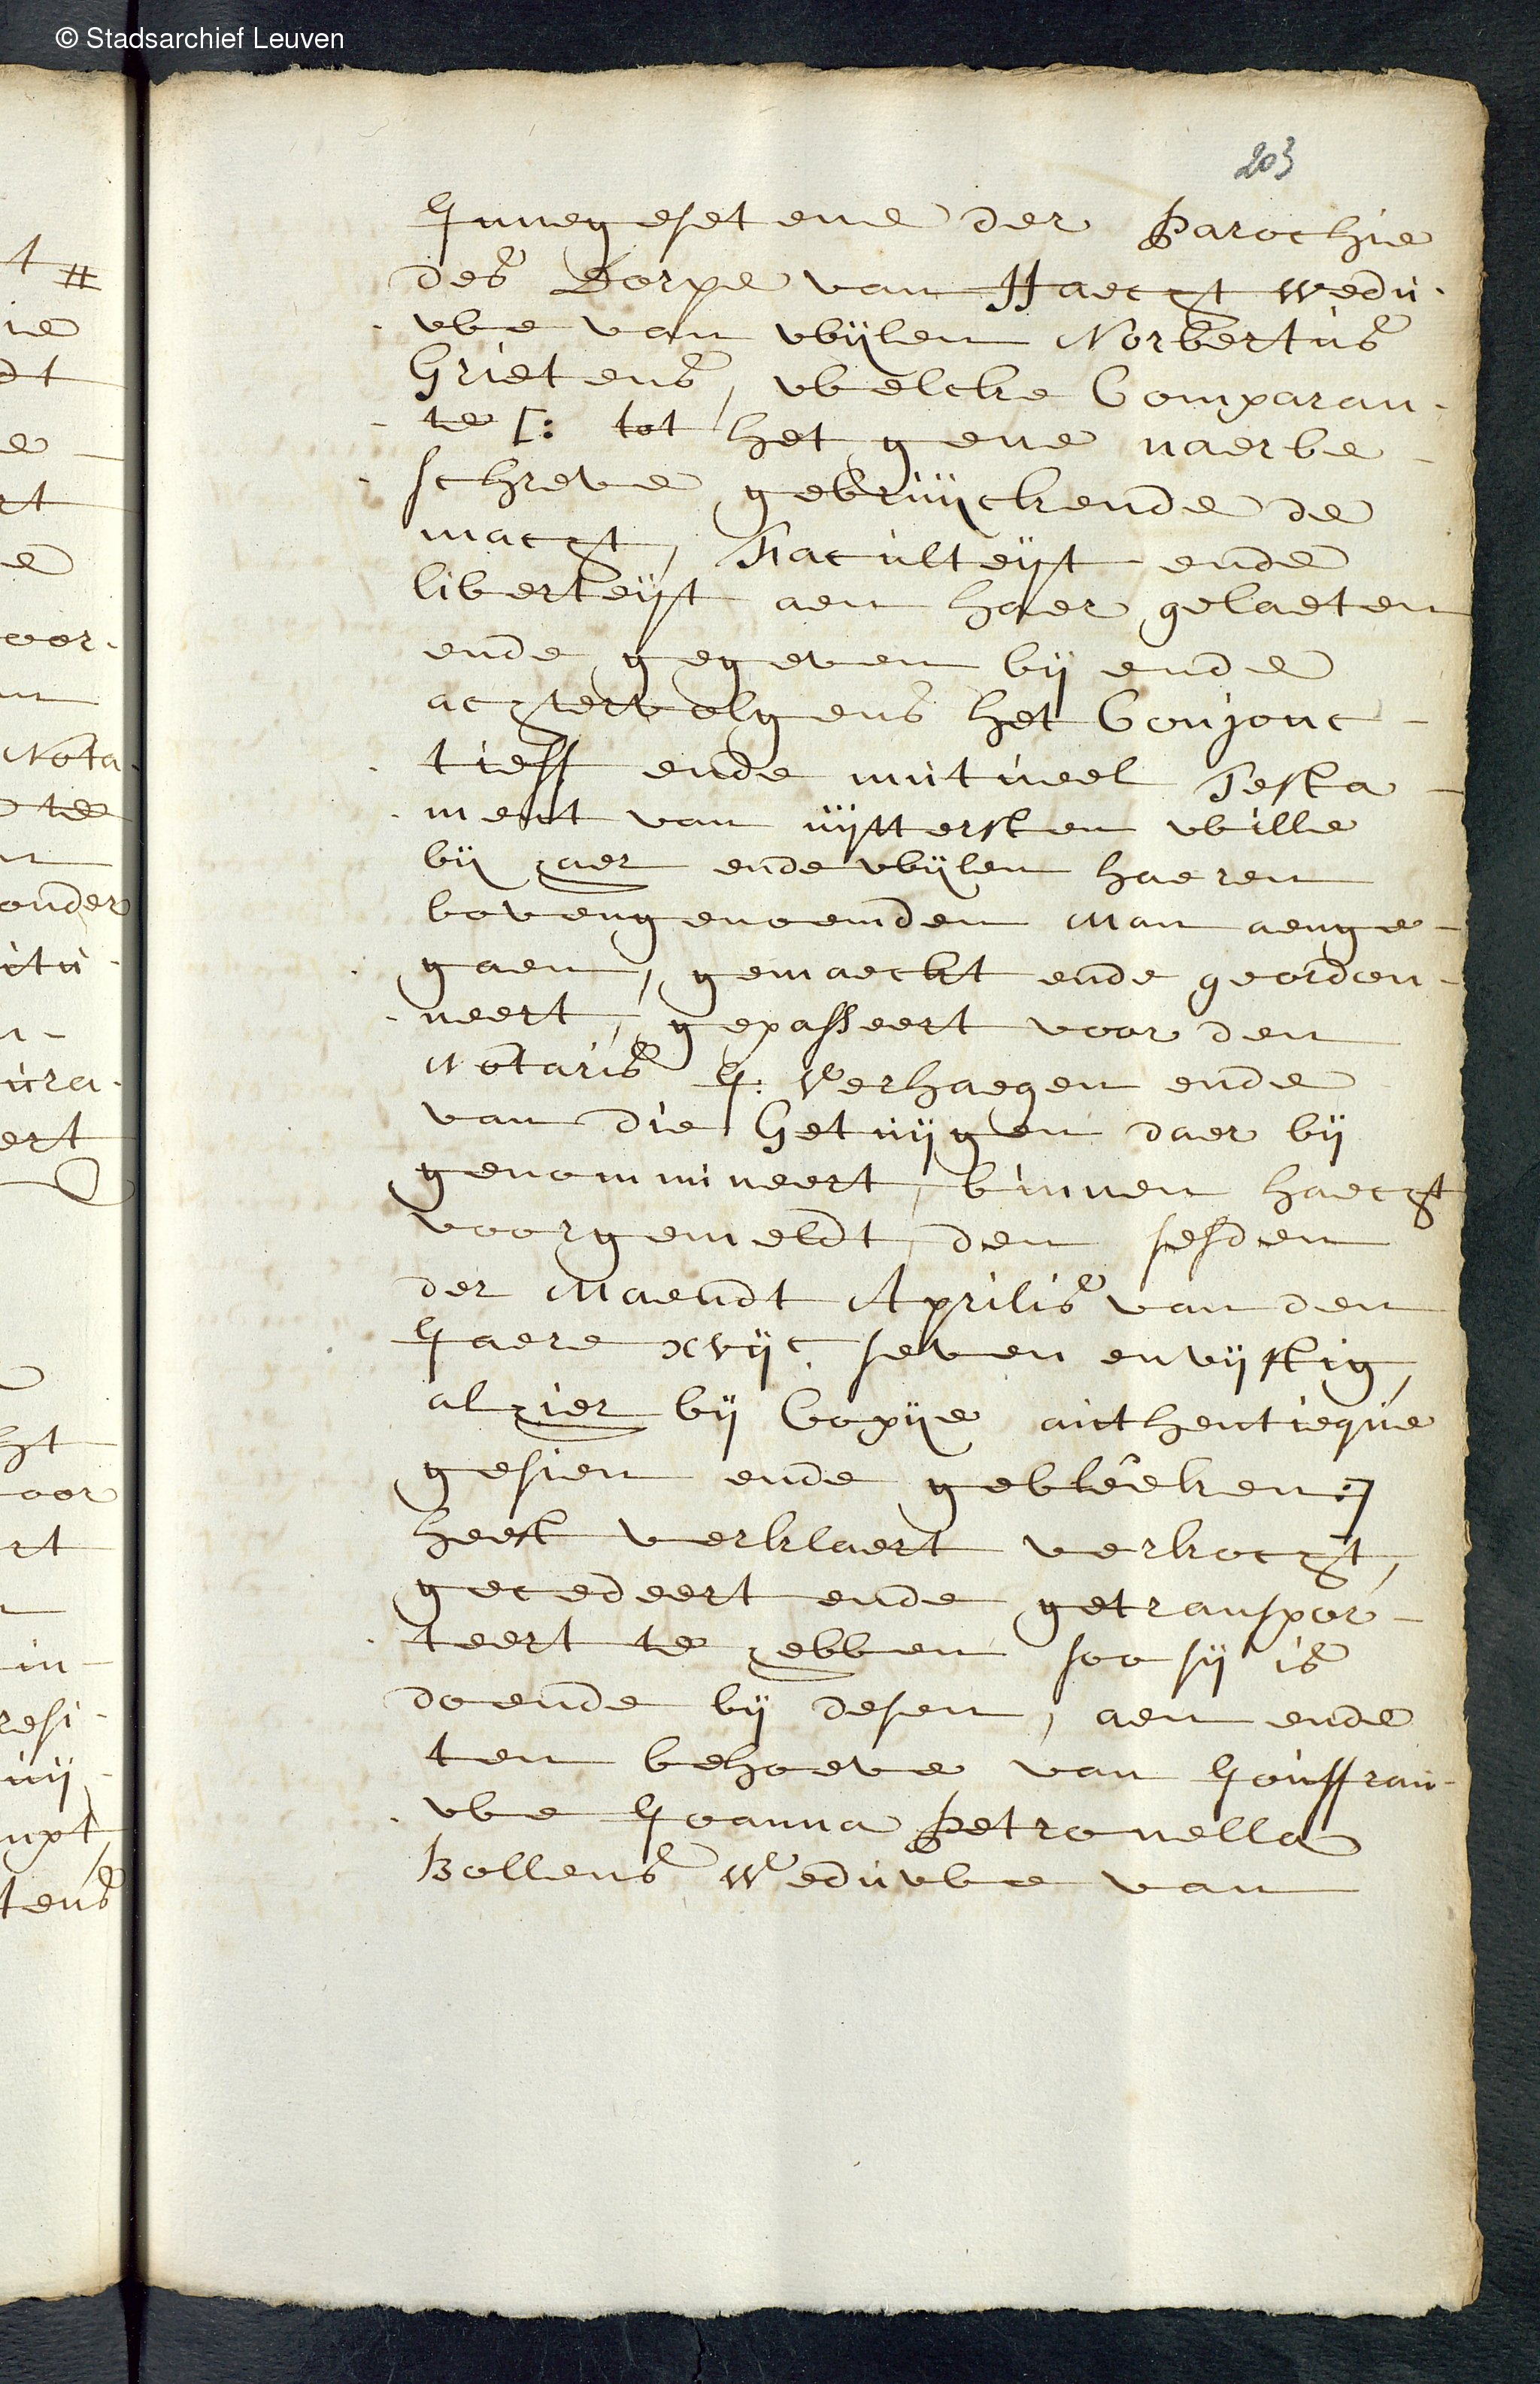 © Stadsarchief Leuven
203
Innegesetene der Parochie
des Dorpe van Haecht wedu-
we van wijlen Norbertus
Grietens, welcke Comparan-
te [: tot het gene naerbe-
schreve gebruijckende de
macht, Faculteijt ende
liberteijt aen haer gelaeten
ende gegeven bij ende
achtervolgens het Conjonc-
tieff ende mutueel Testa-
ment van uijttersten wille
bij haer ende wijlen haeren
bovengenoemden Man aenge-
gaen, gemaeckt ende geordon-
neert, gepasseert voor den
Notaris J. Verhaegen ende
van die Getuijgen daer bij
genommineert, binnen haecht
voorgemeldt den sesden
der Maendt Aprilis van den
Jaere xvijc seven envijftig,
alhier bij Copije authentieque
gesien ende gebleken :]
heeft verklaert verkocht,
gecedeert ende getranspor-
teert te hebben soo sij is
doende bij desen, aen ende
ten behoeve van Jouffrau-
we Joanna Petronella
Bollens Weduwe van
t #
ie
dt
e
rt
e
oor.
Nota-
te
onder
itu-
ura-
ert
ht
oor
rt
in-
resi-
uij
upt
tens